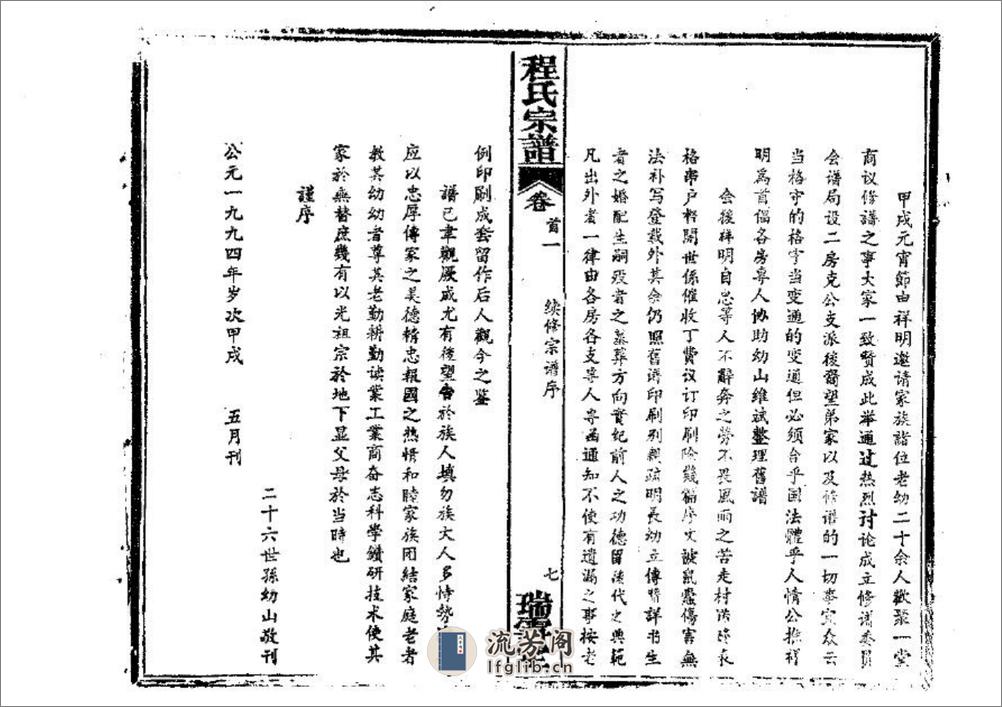 甲戌元宵節由祥明邀请家族諸位老幼二十余人歡聚一堂
商议修譜之事大家一致賛成此举通过热烈讨论成立修谱委員
会谱局设二房克公支派後裔望弟家以及修谱的一切事宜众云
当格守的格守当变通的变通但必须合乎国法體乎人情公推祥
明為首倡各房專人协助幼山维試整理舊譜
会後祥明自忠等人不辭奔之劳不畏風雨之苦走村
格串户釐開世係催收丁費议订印刷除幾篇序文被鼠蠹傷害無
法补写登载外其余仍照舊谱印刷列親疏明長幼立傳詳书生
者之婚配生嗣殁者之墓葬方向實紀前人之功德留後代之典範
凡出外者一律由各房各支專人專函通知不使有遺漏之事按老
程氏宗譜
卷
首一
续修宗谱序
七
瑞
例印刷成套留作后人觀今之鉴
譜已聿觀厥成尤有後望告於族人填勿族大人多恃勢
应以忠厚傳家之美德精忠報國之热情和睦家族团结家庭老者
教其幼幼者尊其老勤耕勤读業工業商奋志科學鑽研技术使其
家於無替庶幾有以光祖宗於地下显父母於當時也
謹序
二十六世孫幼山敬刊
公元一九九四年岁次甲戌 五月刊
流芳阁
lfglib.cn